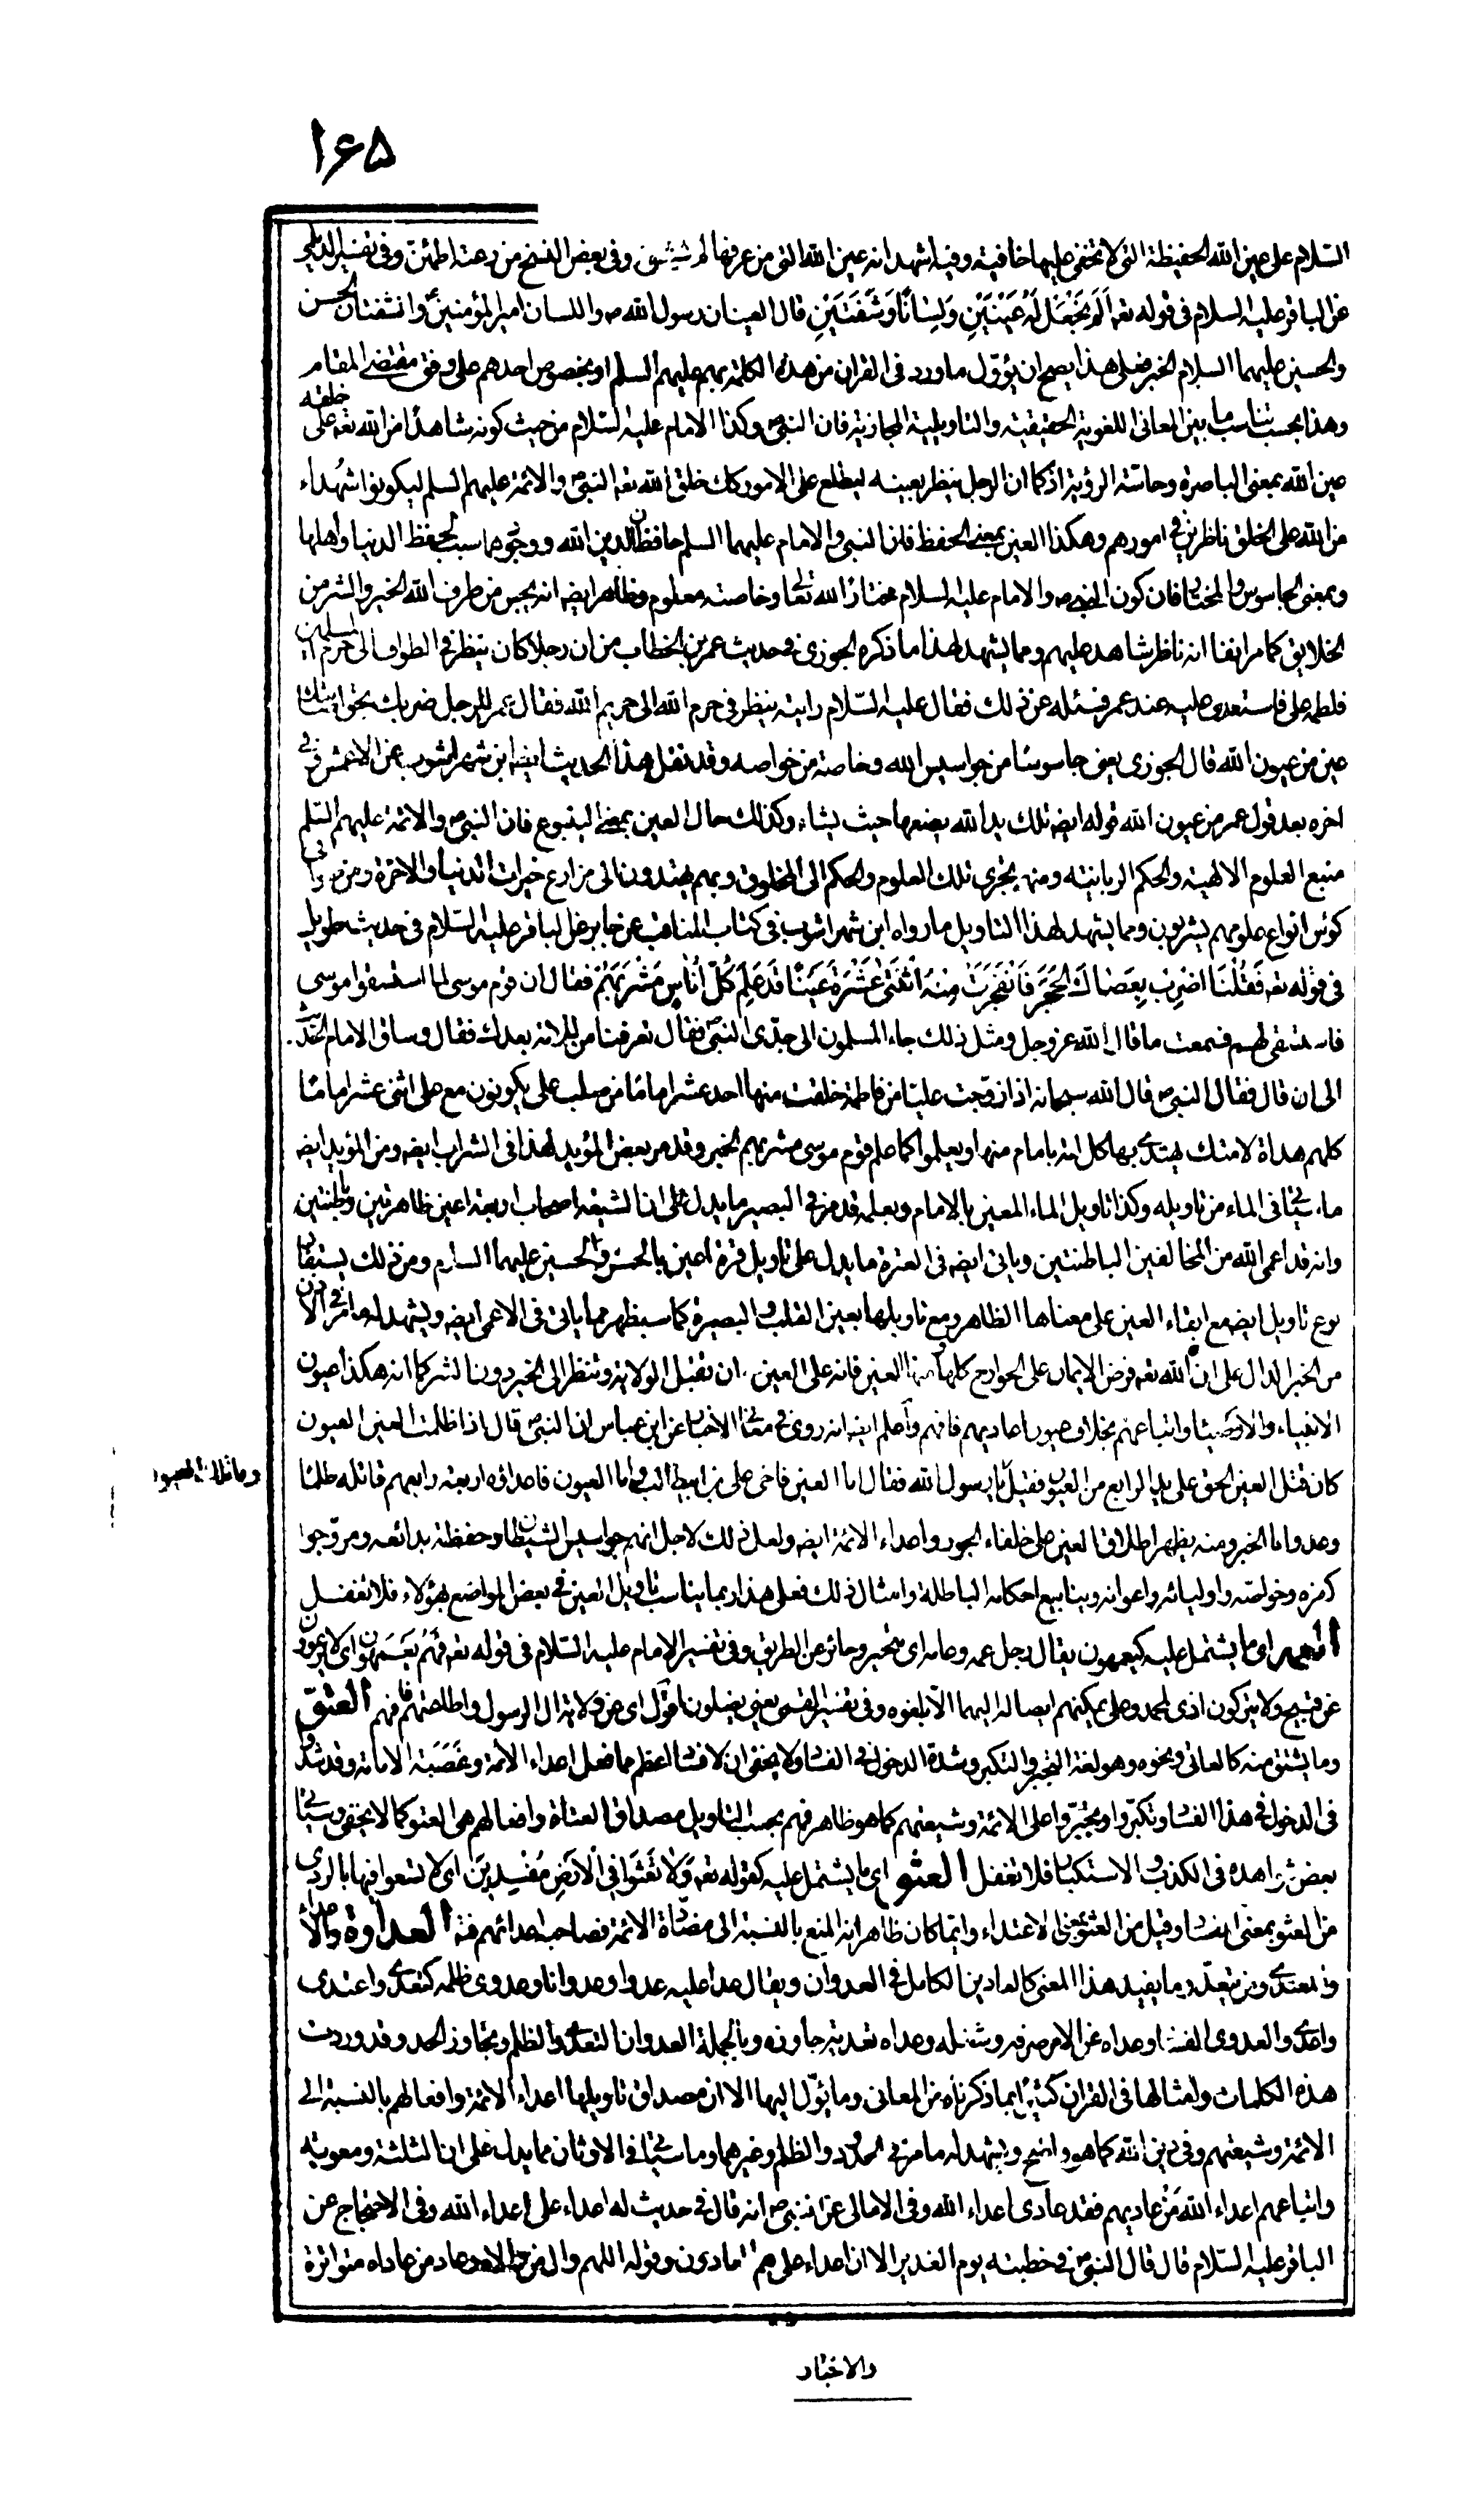 ١٦٥
السّلام على عين الله الحفيظة التى لا تخفى عليها خافية وفيه اشهد انه عين الله التى من عرفها لم وفى بعض النسخ من رعته اطمئن وفى تفسير الديلمى
عن الباقر عليه السلام فى قوله تعه اَلَمْ نَجْعَلْ لَهُ عَيْنَيْنِ وَلِسٰانًا وَشَفَتَيْنِ قال العينان رسول الله ص واللسان امير المؤمنين ع والشفتان الحسن
والحسين عليهما السلام الخبر فعلى هذا يصح ان يؤوّل ما ورد فى القران من هذه الكلمة بهم عليهم السلم او بخصوص احدهم على وفق مقتضى المقام
وهذا بحسب تناسب ما بين المعانى اللغوية الحقيقية والتاويلية المجازية فان النبى ص وكذا الامام عليه السّلام من حيث كونه شاهدًا من الله تعه على خلقه
عين الله بمعنى الباصرة وحاسّة الرؤية اذ كما ان الرجل ينظر بعينه ليطلع على الامور كك خلق الله تعه النبى ص والائمة عليهم السلم ليكونوا شهداء
من الله على الخلق ناظرين فى امورهم وهكذا العين بمعنى الحفظ فان النبى والامام عليهما السلم حافظان لدين الله ووجودهما سبب لحفظ الدنيا واهلها
وبمعنى الجاسوس والمختار فان كون النبى ص والامام عليه السلام مختار الله تعالى وخاصته معلوم وظاهر ايضه انه يجس من طرف الله الخير والشر من
الخلايق كما مر ايضا انه ناظر شاهد عليهم ومما يشهد لهذا ما ذكره الجوزى فى حديث عمر بن الخطاب من ان رجلا كان ينظر فى الطواف الى حرم المسلمين
فلطمه على فاستعدى عليه عند عمر فسئله عن ذلك فقال عليه السّلام رايته ينظر فى حرم الله الى حريم الله فقال عمر للرجل ضربك بحق اصابتك
عين من عيون الله قال الجوزى يعنى جاسوسًا من جواسيس الله وخاصة من خواصه وقد نقل هذا الحديث ايضه ابن شهراشوب عن الاعمش وفى
اخره بعد قول عمر من عيون الله قوله ايضه تلك يد الله يضعها حيث يشاء وكذلك حال العين بمعنى الينبوع فان النبى ص والائمة عليهم السّلم
منبع العلوم الالهية والحكم الربانية ومنهم يجرى تلك العلوم والحكم الى المخلوق وبهم يهتدون الى مزارع خيرات الدنيا والاخرة ومن
كؤس انواع علومهم يشربون ومما يشهد لهذا التاويل ما رواه ابن شهراشوب فى كتاب المناقب عن جابر عن الباقر عليه السّلام فى حديث طويل
فى قوله تعه فَقُلْنَا اضْرِبْ بِعَصٰاكَ الْحَجَرَ فَانْفَجَرَتْ مِنْهُ اثْنَتٰى عَشْرَةَ عَيْنًا قَدْ عَلِمَ كُلُّ اُنٰاسٍ مَشْرَبَهُمْ فقال ان قوم موسى لما استسقوا موسى
فاستسقى لهم فسمعت ما قال الله عز وجل ومثل ذلك جاء المسلمون الى جدّى النبى ص فقال تعرفنا من للامة بعدك فقال وساق الامام الحديث
الى ان قال فقال النبى ص قال الله سبحانه اذا زوّجت عليّا من فاطمة خلقت منها احد عشر امامًا من صلب على يكونون مع على اثنى عشر امامًا
كلهم هداة لامتك يهتدى بها كل امة بامام منها ويعلموا كما علم قوم موسى مشربهم الخبر وقد مر بعض المؤيد لهذا فى الشراب ايضه ومن المؤيد ايضه
ما سياتى فى الماء من تاويله وكذا تاويل الماء المعين بالامام وبعلمه قد مر فى البصير ما يدل على ان الشيعة اصحاب اربعة اعين ظاهرتين وباطنتين
وانه قد اعمى الله من المخالفين الباطنتين وياتى ايضه فى العترة ما يدل على تاويل قرة اعين بالحسن والحسين عليهما السلام ومن ذلك يستفاد
نوع تاويل ايضه مع ابقاء العين على معناها الظاهر ومع تاويلها بعين القلب والبصيرة كما سيظهر مما ياتى فى الاعمى ايضه ويشهد له ما مر فى الاذن
من الخبر الدال على ان الله تعه فرض الايمان على الجوارح كلها منها العين فانه على العين ان تقبل الولاية وتنظر الى الخير دون الشر كما انه هكذا عيون
الانبياء والاوصياء واتباعهم بخلاف عيون اعاديهم فافهم واعلم ايضه انه روى فى معانى الاخبار عن ابن عباس ان النبى ص قال اذا ظلمت العين العيون
كان قتل العين الحق على يد الرابع من العيون فقيل يا رسول الله فقال اما العين فاخى على بن ابيطالب واما العيون فاعداؤه اربعة رابعهم قاتله ظلمًا
وما تلك العيون
وعدوانا الخبر ومنه يظهر اطلاق العين على خلفاء الجور واعداء الائمة ايضه ولعل ذلك لاجل انهم جواسيس الشيطان وحفظة بدائعه ومروّجوا
كفره وخواصّه واوليائه واعوانه وينابيع احكامه الباطلة وامثال ذلك فعلى هذا ربما يناسب تاويل العين فى بعض المواضع بهؤلاء فلا تغفل
العمه اى ما يشتمل عليه كيعمهون يقال رجل عمه وعامه اى متحير وحائر عن الطريق وفى تفسير الامام عليه السّلام فى قوله تعه فَهُمْ يَعْمَهُونَ اى لا يرعوون
عن قبيح ولا يتركون اذى لمحمد وعلى يمكنهم ايصاله اليهما الّا بلغوه وفى تفسير القمى يعنى يضلون اقول اى عن ولاية ال الرسول واطاعتهم فافهم العتو
وما يشتق منه كالعاتى ونحوه وهو لغة التجبر والتكبر وشدة الدخول فى الفساد ولا يخفى ان لا فساد اعظم مما فعل اعداء الائمة وغَصَبَة الامامة وقد شدّوا
فى الدخول فى هذا الفساد وتكبّروا وتجبّروا على الائمة وشيعتهم كما هو ظاهر فهم بحسب التاويل مصداق العتاة وافعالهم هى العتو كما لا يخفى وسياتى
بعض شواهده فى الكذب والاستكبار فلا تغفل العثو اى ما يشتمل عليه كقوله تعه وَلاٰ تَعْثَوْا فِى الْاَرْضِ مُفْسِدِينَ اى لا تسعوا فيها بالردى
من العثو بمعنى الفساد وقيل من العثو بمعنى الاعتداء وايّما كان ظاهرانه المنع بالنسبة الى مضادّة الائمة فصاحبه اعدائهم فتـ العداوة والاعداء
والمعتدى ومن يتعدّ وما يفيد هذا المعنى كالعادين الكامل فى العدوان ويقال عدا عليه عدوا وعدوانا وعدوى ظلمه كتعدى واعتدى
واعدى والعدوى الفساد وعداه عن الامر صرفه وشغله وعداه تعدية جاوزه وبالجملة العدوان التعدّى والظلم وتجاوز الحد وقد وردت
هذه الكلمات وامثالها فى القران كثيرًا بما ذكرناه من المعانى وما يؤّل اليها الا ان مصداق تاويلها اعداء الائمة وافعالهم بالنسبة الى
الائمة وشيعتهم وفى دين الله كما هو واضح ويشهد له ما مر فى الحدود والظلم وغيرهما وما سياتى فى الاوثان مما يدل على ان الثلثة ومعوية
واتباعهم اعداء الله مَنْ عاديهم فقد عادى اعداء الله وفى الامالى عن النبى ص انه قال فى حديث له اعداء على اعداء الله وفى الاحتجاج عن
الباقر عليه السّلام قال قال النبى ص فى خطبته يوم الغدير الا ان اعداء على هم العادون وقوله اللهم وال من والاه وعاد من عاداه متواترة
والاخبار